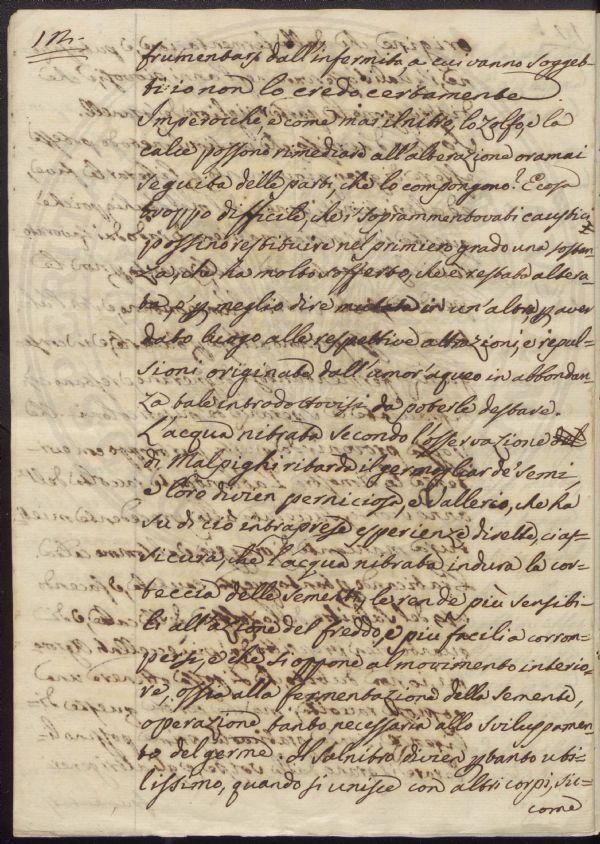 frumentarj dall'infermità a cui vanno sogget=
ti: io non lo credo certamente.
Imperocchè, e come mai il nitro, lo zolfo, e la
calce possono rimediare all'alterazione oramai
seguita delle parti, che lo compongono? È cosa
troppo difficile, che i soprammentovati caustici
possino restituire nel primiero grado una sostan
za, che ha molto sofferto, che è restata altera=
ta, e p meglio dire mutata in un'altra, p aver
dato luogo alle respettive attrazioni, e repul=
sioni originate dall'amor'aqueo in abbondan
za tale introdottovisi da poterle destare.
L'acqua nitrata secondo l'osservazione
di Malpighi ritarda il germogliar de' semi,
e loro divien perniciosa, e Vallerio, che ha
su di ciò intraprese esperienze dirette, ci as=
sicura, che l'acqua nitrata indura la cor=
teccia delle sementi, le rende più sensibi=
li all'azione del freddo, e più facili a corrom=
persi, e che si oppone al movimento interio=
re, ossia alla fermentazione della semente,
operazione tanto necessaria allo sviluppamen=
to del germe. Il salnitro divien ptanto uti=
lissimo, quando si unisce con altri corpi, sic=
come